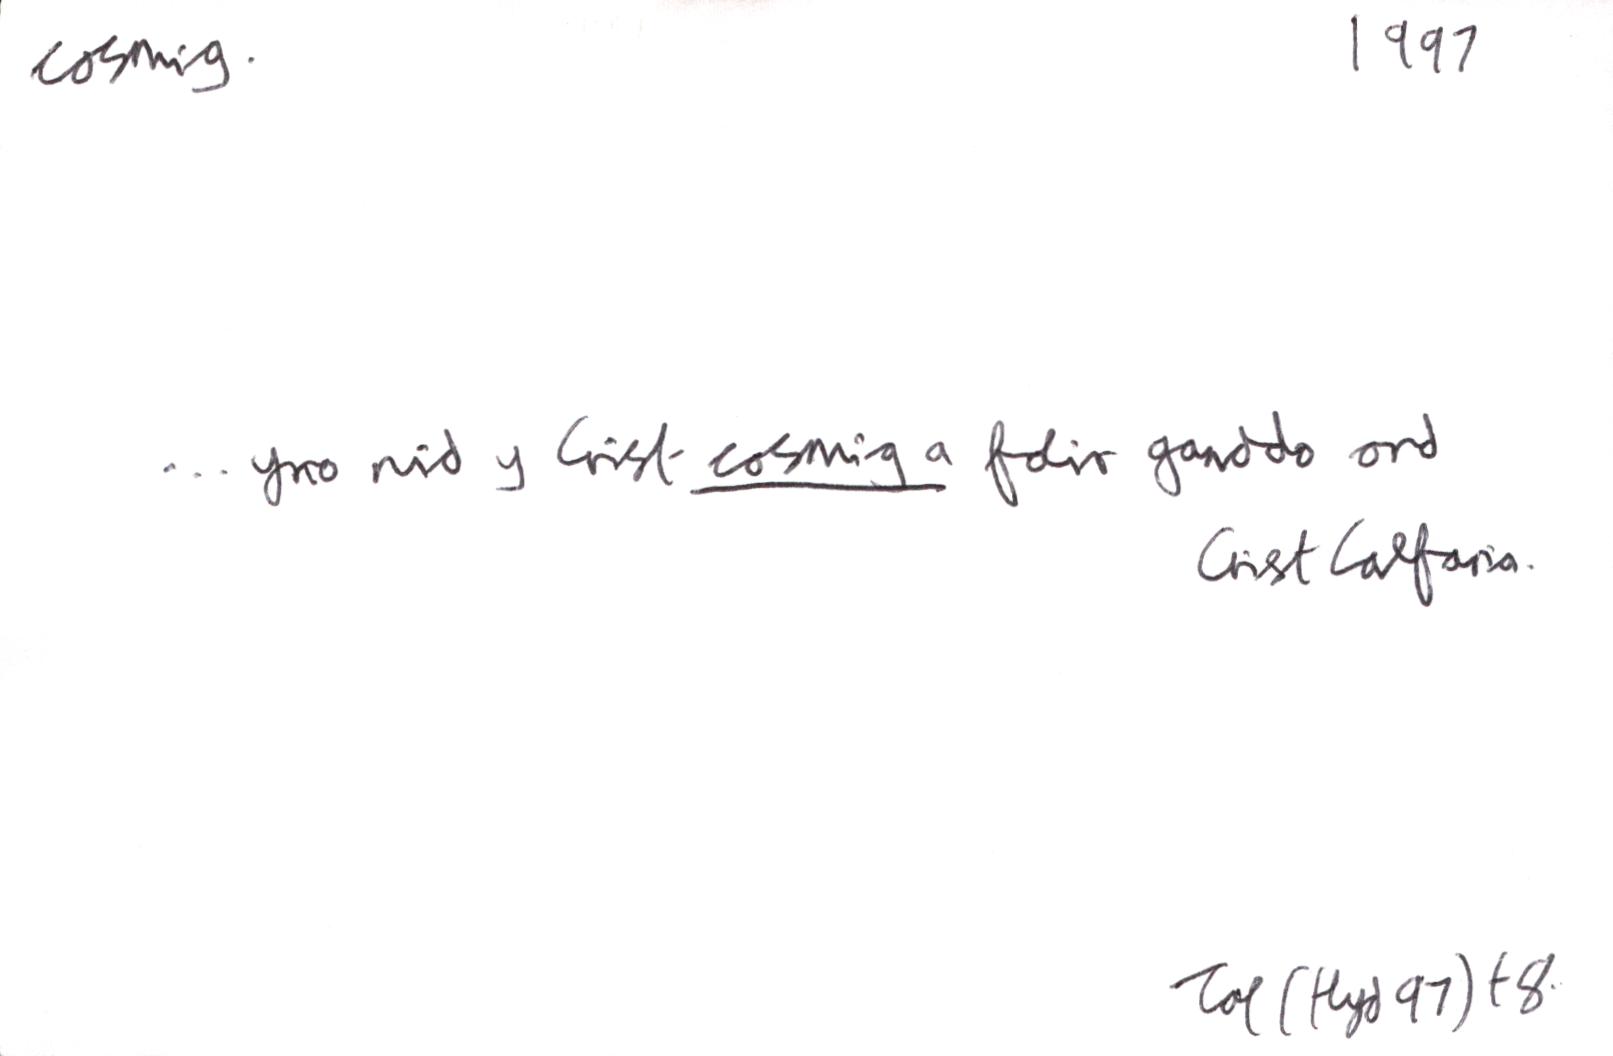 cosmig.
1997
... yno nid y Crist cosmig a folir ganddo ond
Crist Calfaria.
(Hyd 97) t8.